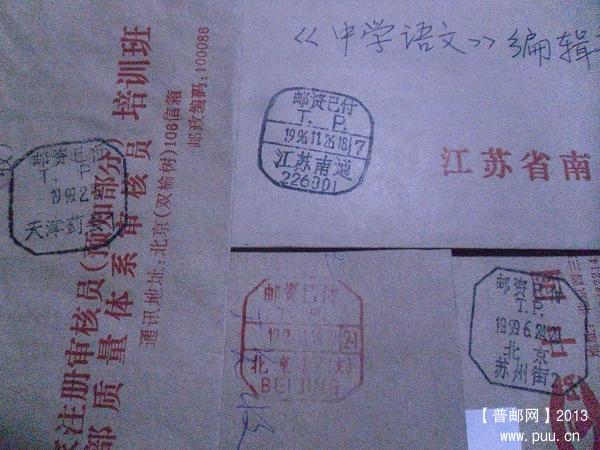 《中学语文》编辑
邮资已付
T. P.
1996.11.26.18 7
江苏南通
226001
江苏省南
邮资已付
T. P.
天津
注册审核员(预知部分)培训班
部质量体系审核员
通讯地址:北京(双榆树)108信箱
邮政编码:100086
邮资已付
T. P.
21
北京
BEIJING
邮资已付
T. P.
1999.6.24.21
北京
苏州街2
中国
【普邮网】2013
www.puu.cn